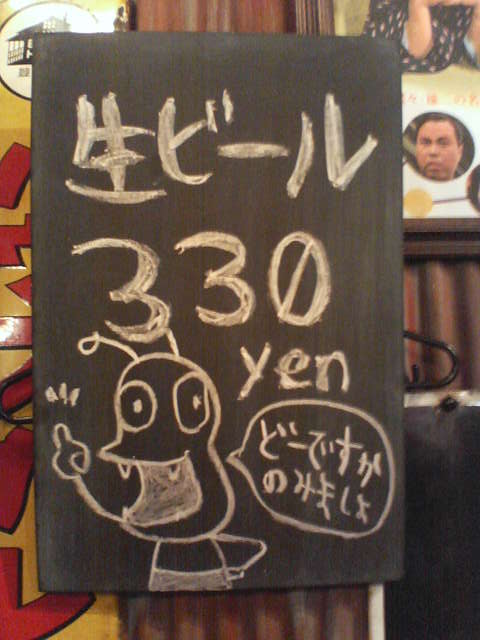 生ビール
330
yen
どーですか
のみましょ